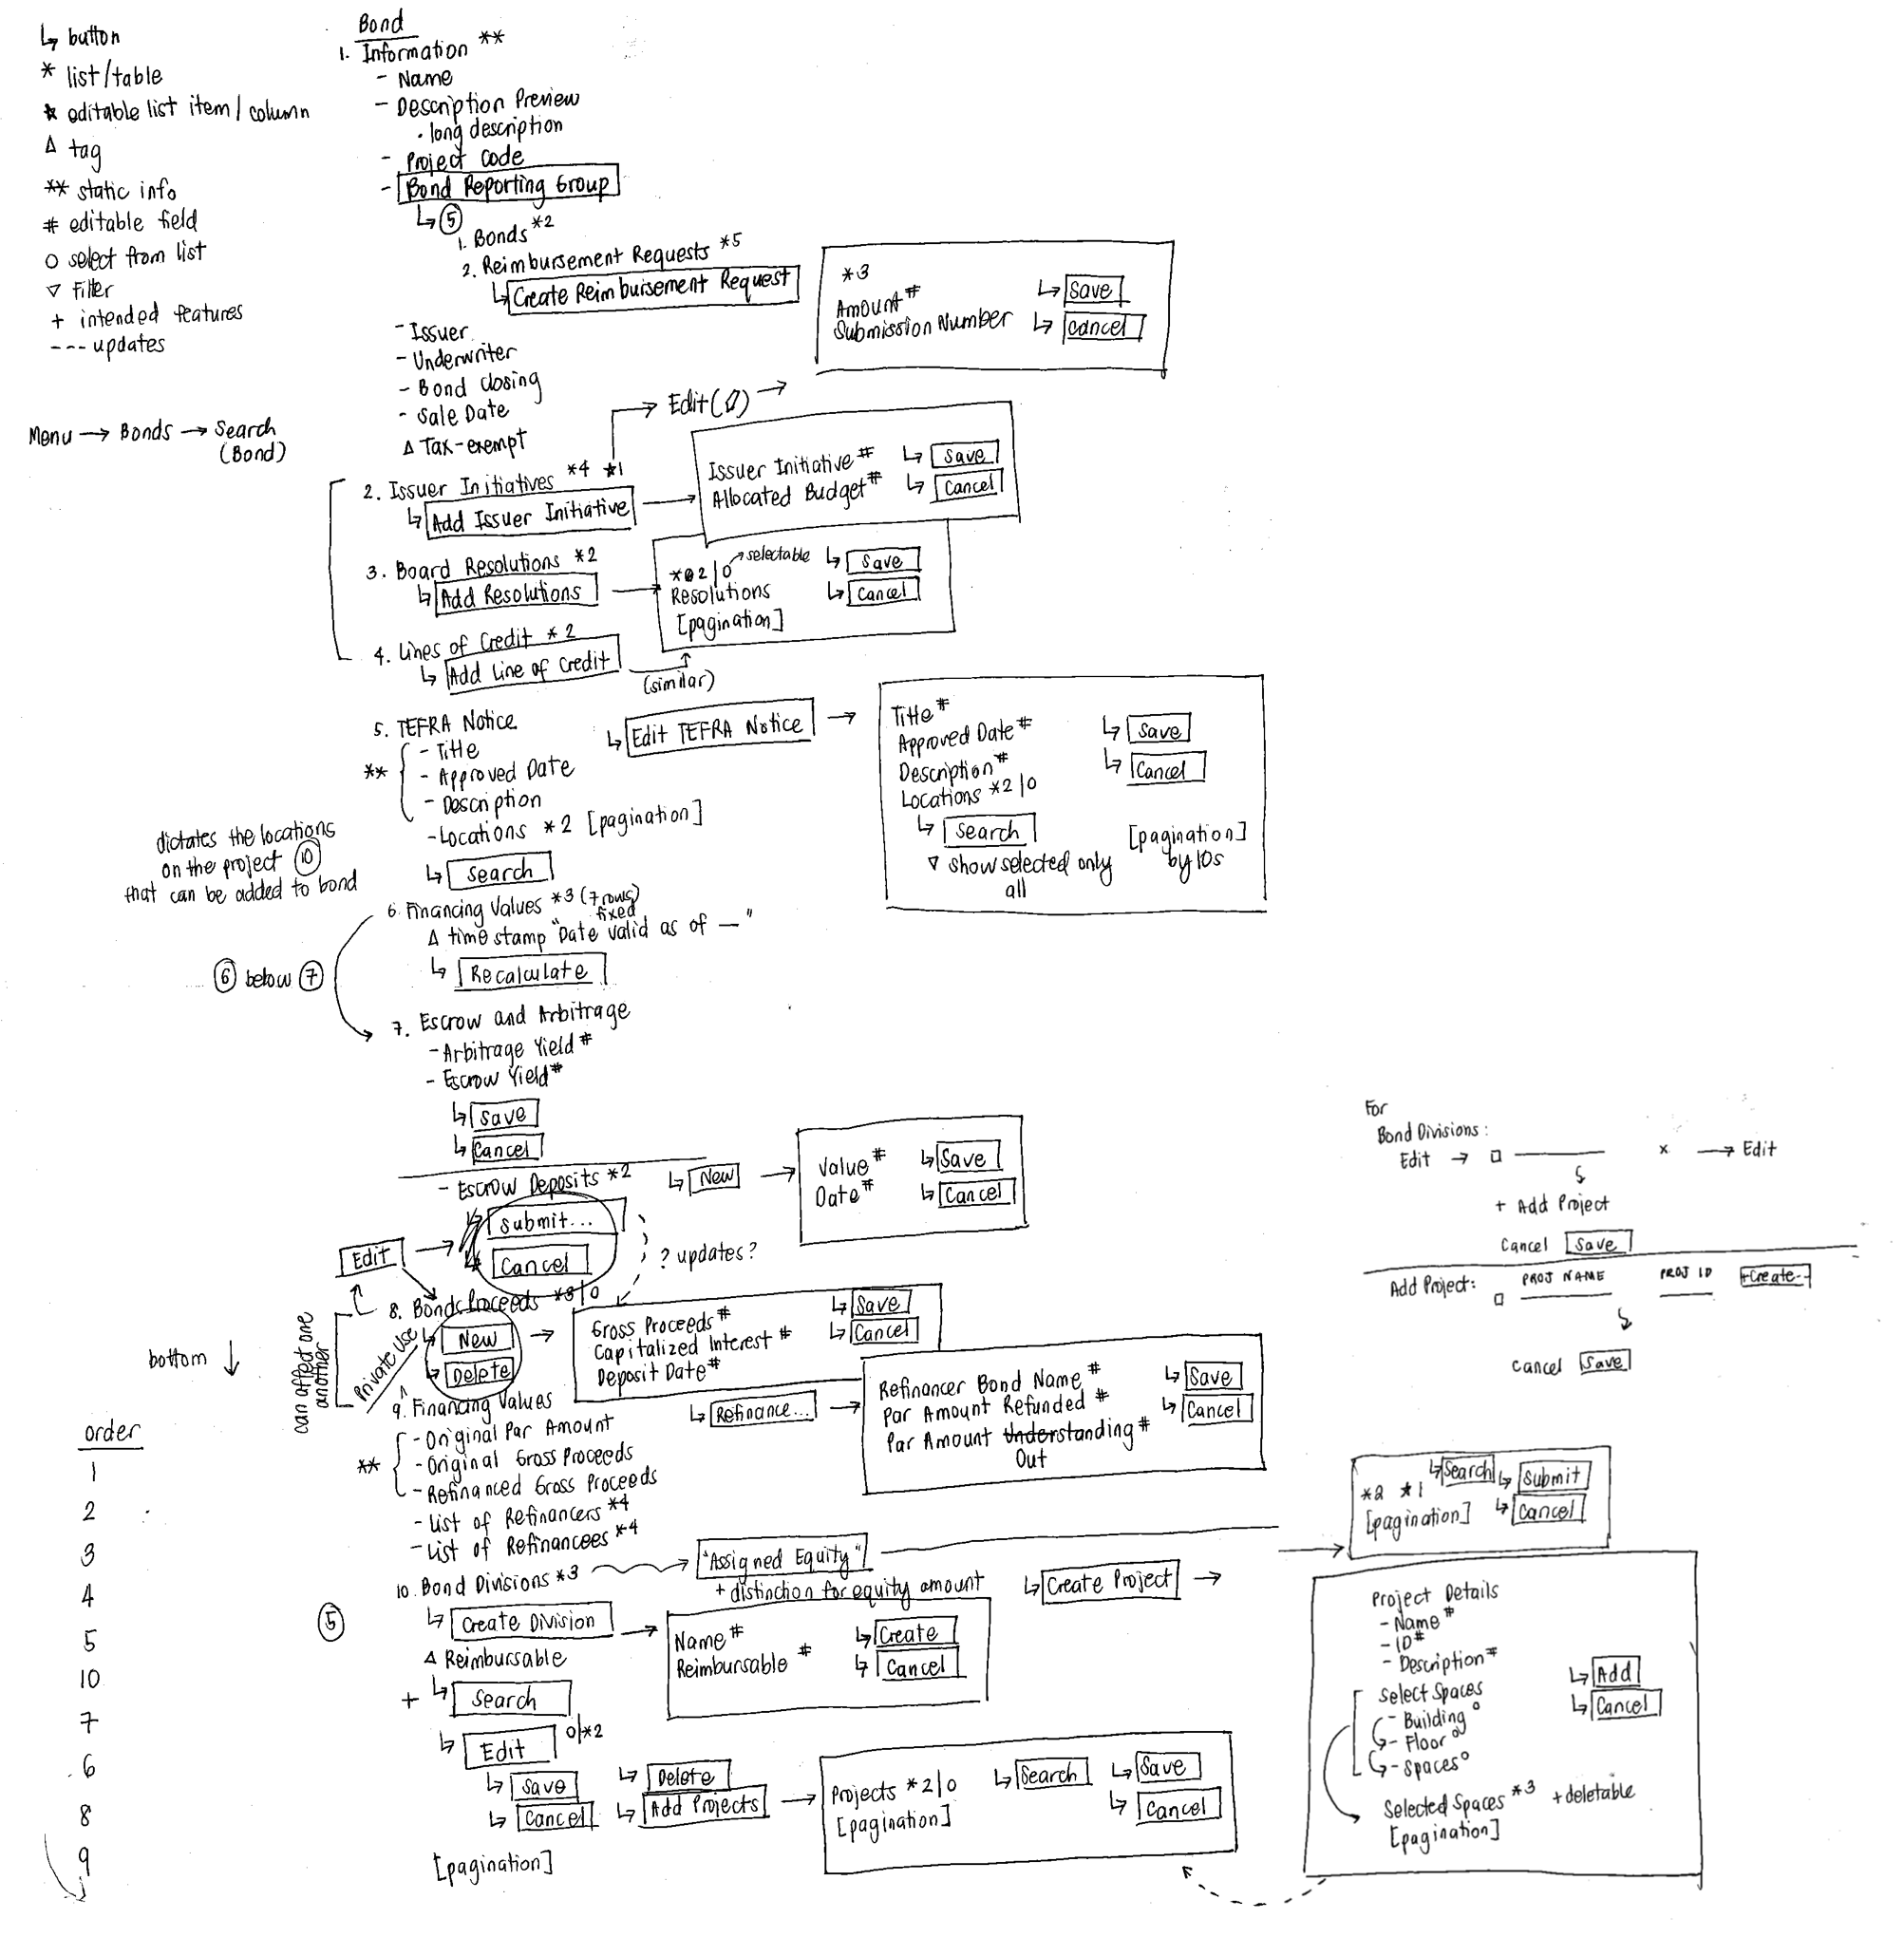 ↳ button
* list/table
★ editable list item / column
Δ tag
** static info
# editable field
O select from list
▽ Filter
+ intended features
--- updates
Menu → Bonds → Search
(Bond)
Bond
1. Information **
- Name
- Description Preview
· long description
- Project Code
- Bond Reporting Group
↳ ⑤
1. Bonds *2
2. Reimbursement Requests *5
↳ Create Reimbursement Request
*3
Amount #
Submission Number
↳ Save
↳ Cancel
- Issuer
- Underwriter
- Bond Closing
- Sale Date
Δ Tax-exempt
→ Edit ( ) →
2. Issuer Initiatives *4 ★1
↳ Add Issuer Initiative
Issuer Initiative #
Allocated Budget #
↳ Save
↳ Cancel
3. Board Resolutions *2
↳ Add Resolutions
*2|O → selectable
Resolutions
[pagination]
↳ Save
↳ Cancel
4. Lines of Credit *2
↳ Add Line of Credit
(similar)
5. TEFRA Notice
** - Title
- Approved Date
- Description
- Locations *2 [pagination]
↳ Search
↳ Edit TEFRA Notice →
Title #
Approved Date #
Description #
Locations *2|O
↳ Search
▽ show selected only
all
[pagination]
by 10s
↳ Save
↳ Cancel
dictates the locations
on the project ⑩
that can be added to bond
6. Financing Values *3 (7 rows)
fixed
Δ time stamp "Date valid as of —"
↳ Recalculate
⑥ below ⑦
7. Escrow and Arbitrage
- Arbitrage Yield #
- Escrow Yield #
↳ Save
↳ Cancel
- Escrow Deposits *2
↳ New →
Value #
Date #
↳ Save
↳ Cancel
Submit...
Cancel
Edit →
? updates?
8. Bonds Proceeds *3|O
↳ New →
↳ Delete
Gross Proceeds #
Capitalized Interest #
Deposit Date #
↳ Save
↳ Cancel
can affect one
another
Private Use
bottom ↓
9. Financing Values
** - Original Par Amount
- Original Gross Proceeds
- Refinanced Gross Proceeds
- List of Refinancers *4
- List of Refinancees *4
↳ Refinance... →
Refinancer Bond Name #
Par Amount Refunded #
Par Amount Understanding #
Out
↳ Save
↳ Cancel
10. Bond Divisions *3
"Assigned Equity"
+ distinction for equity amount
↳ Create Division →
Δ Reimbursable
+ ↳ Search
↳ Edit O|*2
↳ Save
↳ Cancel
↳ Delete
↳ Add Projects →
[pagination]
⑤
Name #
Reimbursable #
↳ Create
↳ Cancel
Projects *2|O
[pagination]
↳ Search
↳ Save
↳ Cancel
↳ Create Project →
*2 ★1
[pagination]
↳ Search
↳ Submit
↳ Cancel
Project Details
- Name #
- ID #
- Description #
Select Spaces
- Building O
- Floor O
- Spaces O
Selected Spaces *3 + deletable
[pagination]
↳ Add
↳ Cancel
For
Bond Divisions:
Edit → □ ——— x → Edit
+ Add Project
Cancel Save
Add Project: PROJ NAME PROJ ID +Create--
□
Cancel Save
order
1
2
3
4
5
10
7
6
8
9